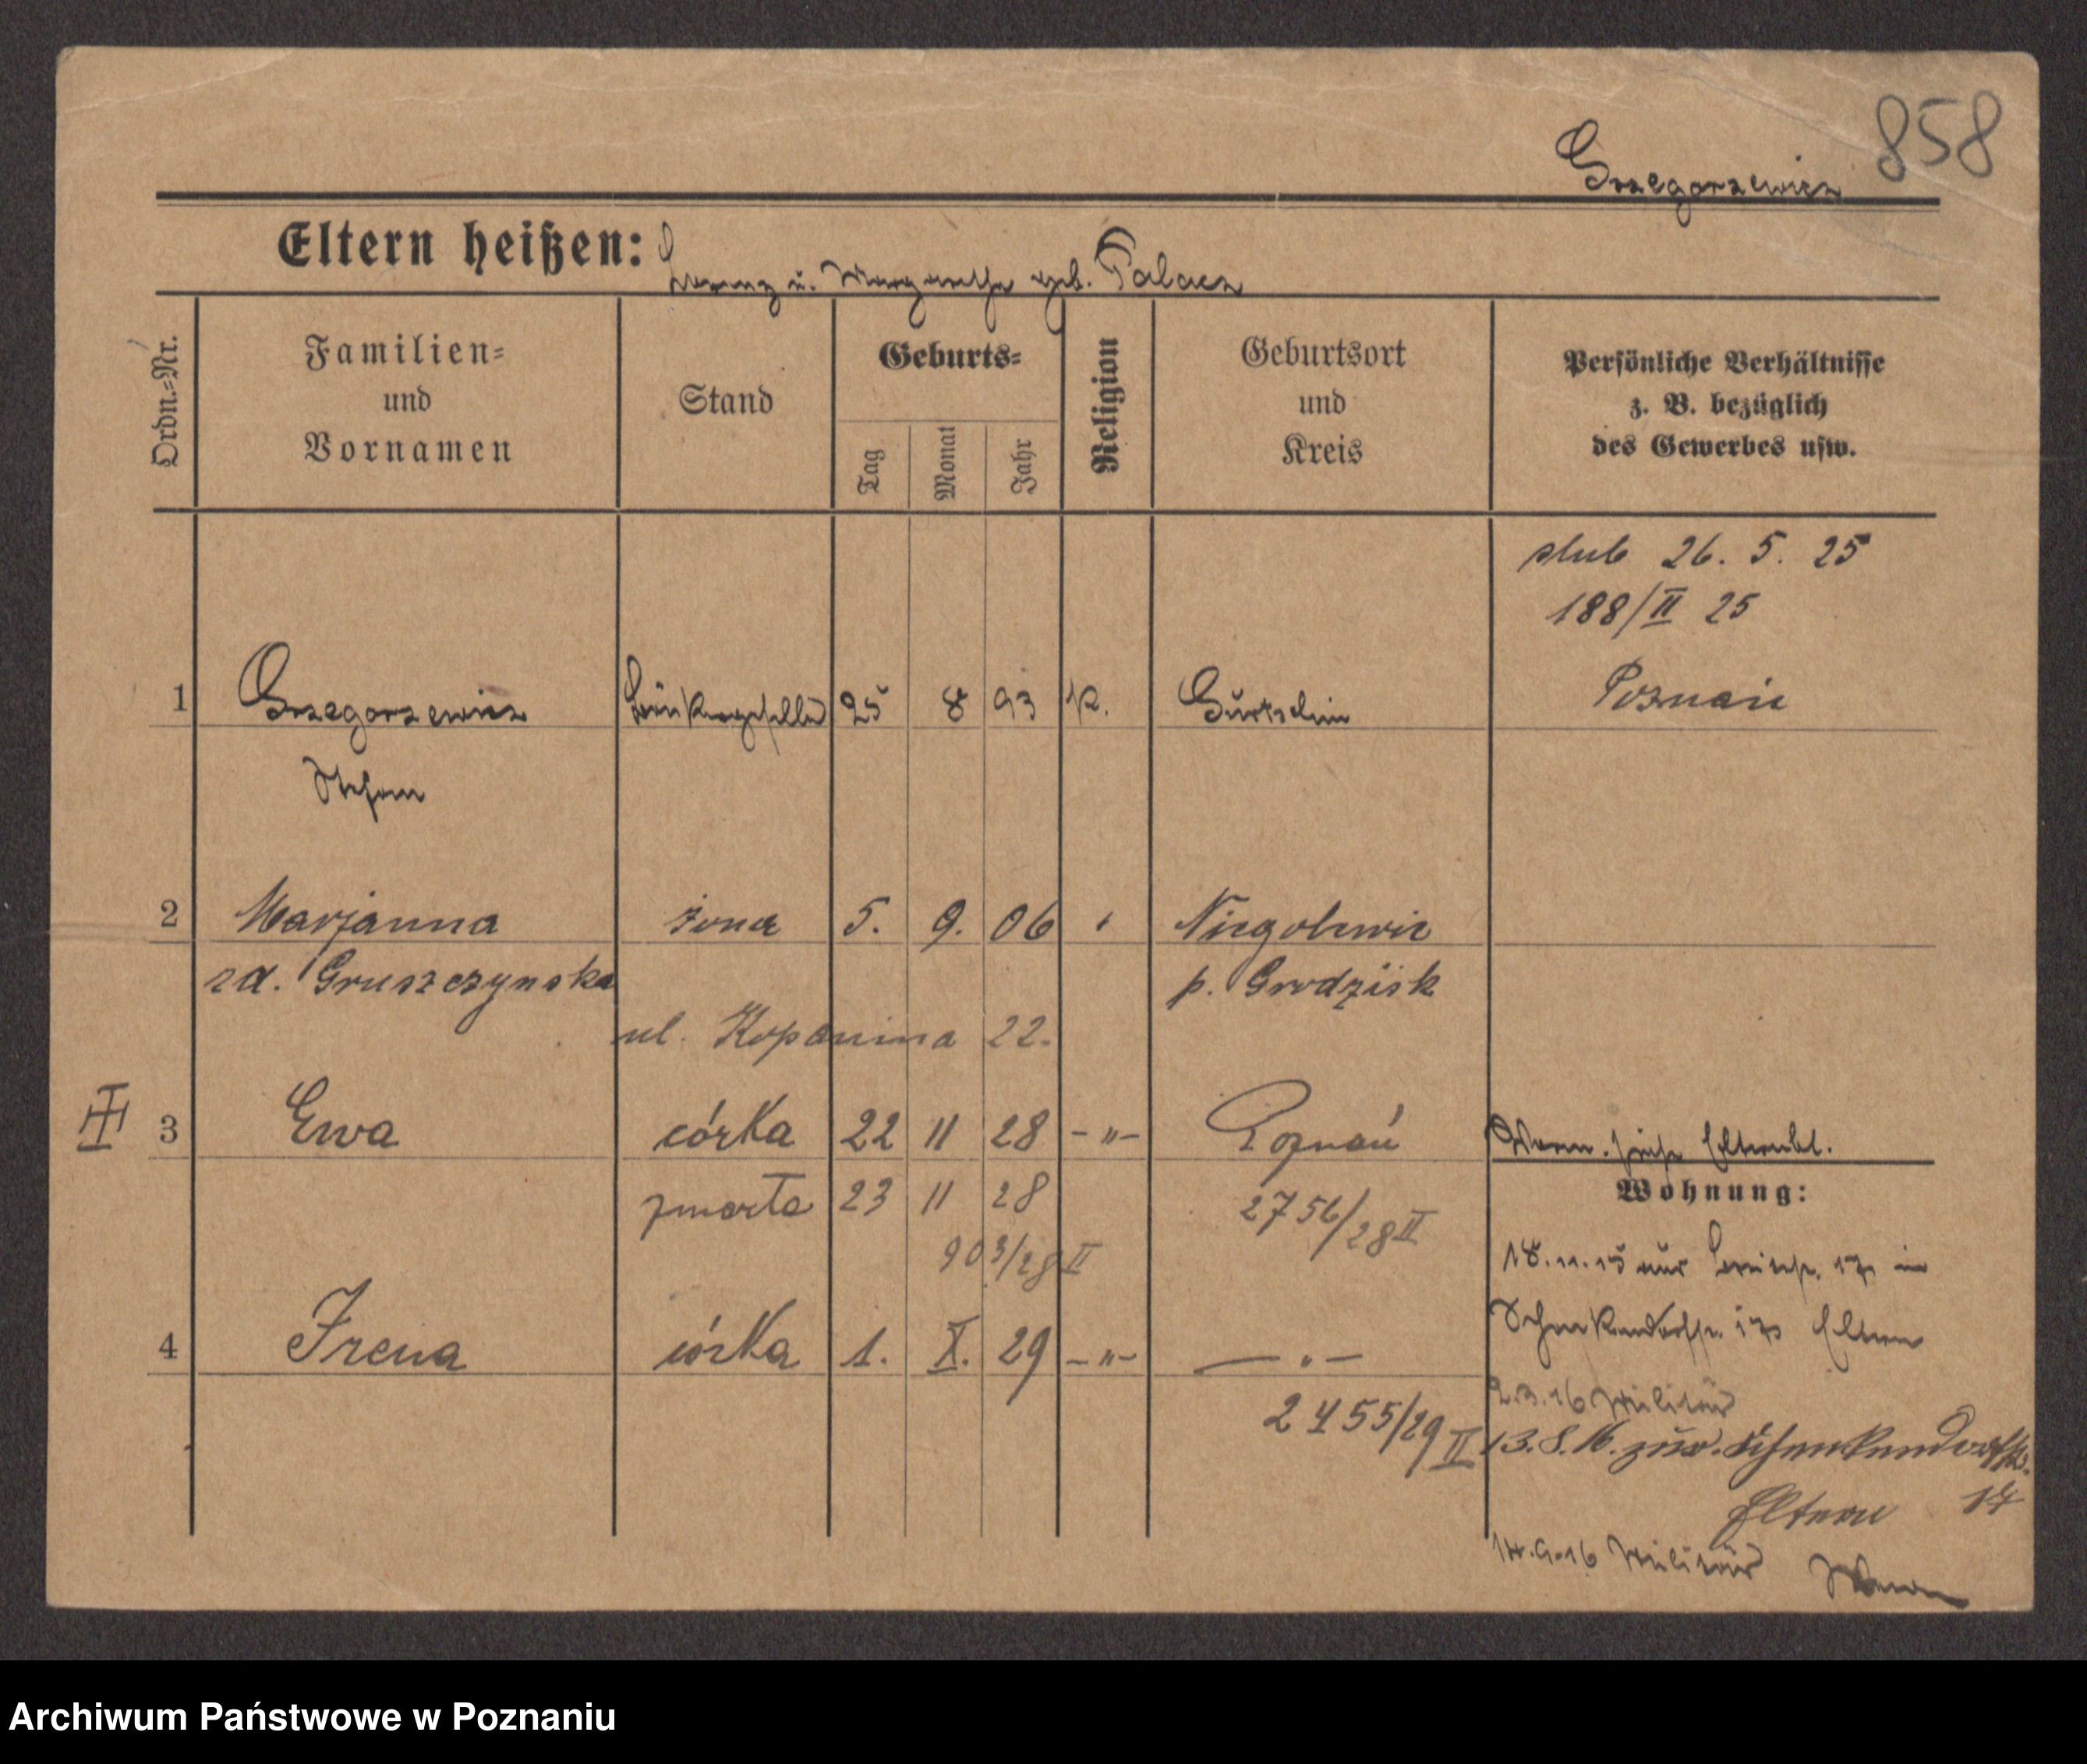 858
Grzegorzewicz
Eltern heißen: Lorenz u. Margarethe geb. Palacz
Ordn.=Nr.
Familien=
und
Vornamen
Stand
Geburts=
Tag
Monat
Jahr
Religion
Geburtsort
und
Kreis
Persönliche Verhältnisse
z. B. bezüglich
des Gewerbes usw.
ślub 26. 5. 25
188/II 25
Poznań
1 Grzegorzewicz 25 8 93 K. Gurtschin
Stefan
2 Marjanna żona 5. 9. 06 Niegolewie
zd. Gruszczynska p. Grodzisk
ul. Kopanina 22.
3 Ewa córka 22 11 28 -"- Poznań
Eltern
zmarła 23 11 28 2756/28 II
903/28 II
Wohnung:
18.11.15 aus 17 in
Schenkendorfstr. 17 Eltern
4 Irena córka 1. X. 29 -"- — " —
2455/29 II
2.3.16 Militär
13.8.16. zur. Schenkendorfstr.
Eltern 17
14.9.16 Militär
Archiwum Państwowe w Poznaniu